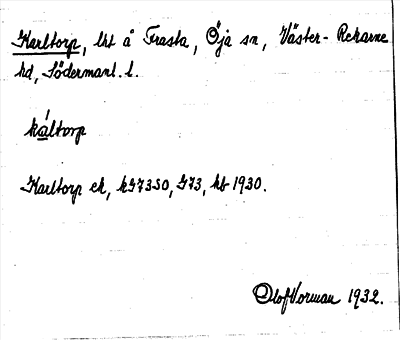 Karltorp, lht å Frasta, Öja sn, Väster-Rekarne
hd, Södermanl. l.
kál̀torp
Karltorp ek, k973SO, 973, kb 1930.
Olof Vorman 1932.